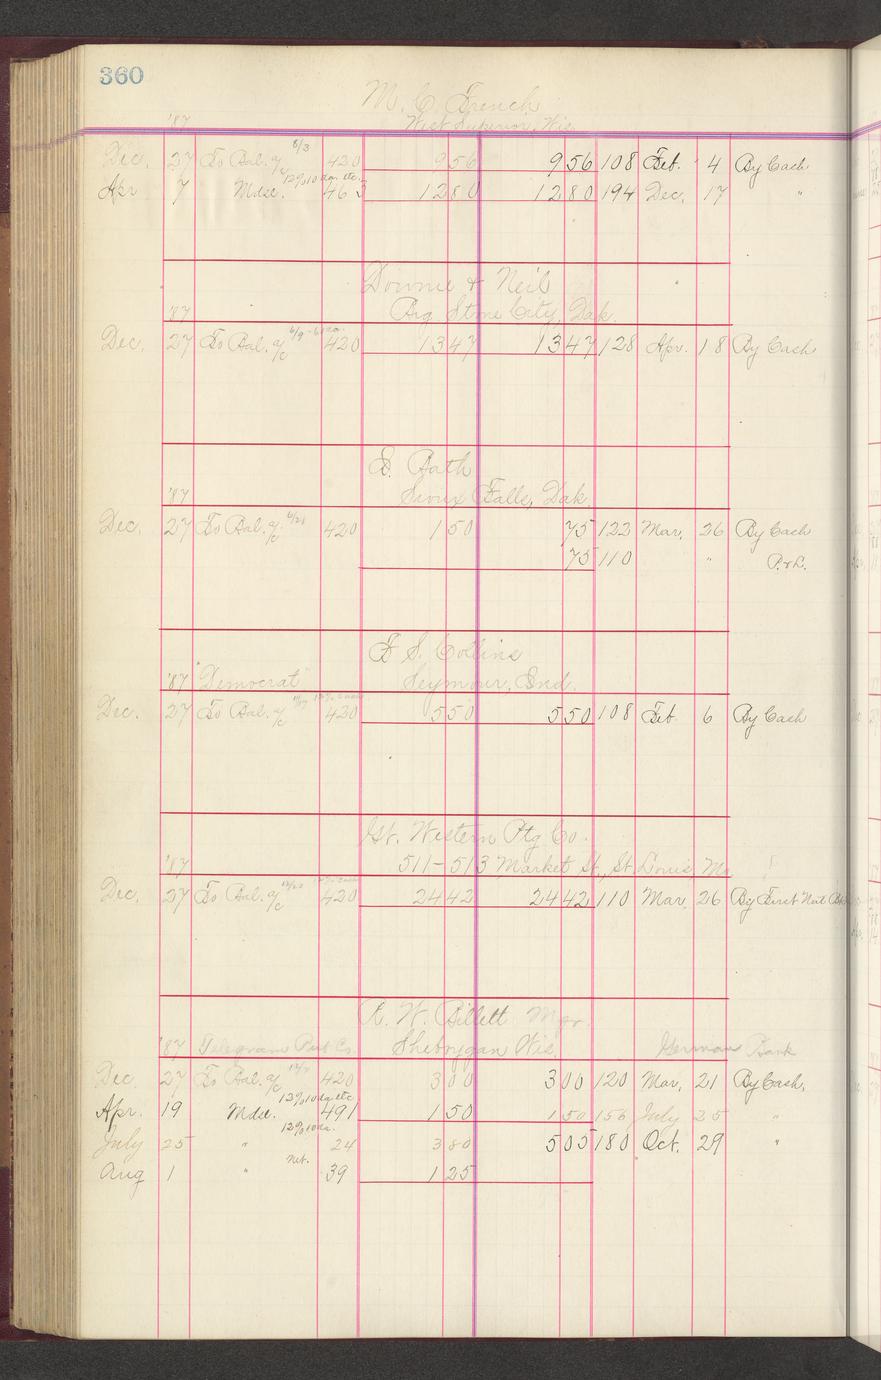 360
M. C. French
'87 West Superior, Wis.
Dec. 27 To Bal. a/c 6/3 420 9 56 9 56 108 Feb. 4 By Cash
Apr 7 Mdse. 12% 10 da. etc. 463 12 80 12 80 194 Dec. 17 "
Downie & Neil
'87 Big Stone City, Dak.
Dec. 27 To Bal. a/c 420 13 47 13 47 128 Apr. 18 By Cash
E. Bath
'87 Sioux Falls, Dak.
Dec. 27 To Bal. a/c 6/21 420 1 50 75 122 Mar. 26 By Cash
75 110 " P.&L.
F. S. Collins
'87 "Democrat" Seymour, Ind.
Dec. 27 To Bal. a/c 420 5 50 5 50 108 Feb. 6 By Cash
Gt. Western Ptg Co.
'87 511-513 Market St., St. Louis, Mo
Dec. 27 To Bal. a/c 420 24 42 24 42 110 Mar. 26 By First Natl Bk
A. W. Billett Mgr.
'87 Telegram Pub Co. Sheboygan Wis. German Bank
Dec. 27 To Bal. a/c 420 3 00 3 00 120 Mar. 21 By Cash.
Apr. 19 Mdse. 12% 10 da etc 491 1 50 1 50 156 July 25 "
July 25 " 12% 10 da. 24 3 80 5 05 180 Oct. 29 "
Aug 1 " net. 39 1 25